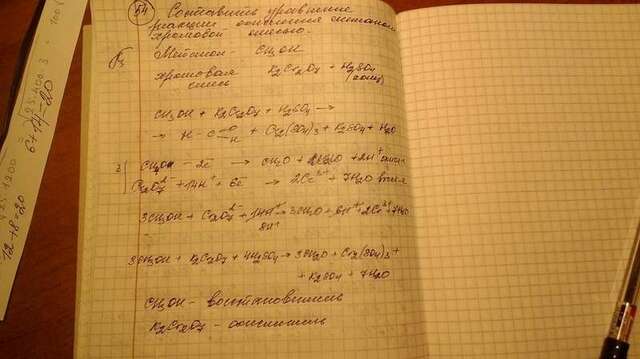 54 Составить уравнение
реакции окисления метанола
хромовой смесью.
Метанол - CH3OH
хромовая смесь K2Cr2O7 + H2SO4 (конц)
CH3OH + K2Cr2O7 + H2SO4 →
→ H - C =O -H + Cr2(SO4)3 + K2SO4 + H2O
CH3OH - 2e → CH2O + 2H+
Cr2O7 2- + 14H+ + 6e → 2Cr3+ + 7H2O
3CH3OH + Cr2O7 2- + 14H+ → 3CH2O + 6H+ + 2Cr3+ + 7H2O
8H+
3CH3OH + K2Cr2O7 + 4H2SO4 → 3CH2O + Cr2(SO4)3 +
+ K2SO4 + 7H2O
CH3OH - восстановитель
K2Cr2O7 - окислитель
6+14=20
12+8=20